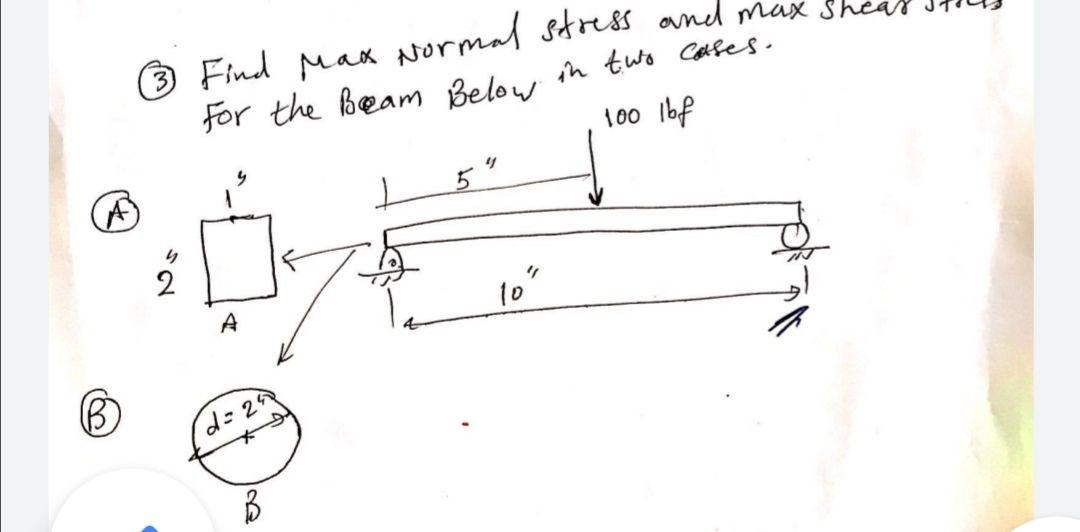 ③ Find Max Normal stress and max shear stress
For the Beam Below in two cases.
100 lbf
5"
1"
Ⓐ
2"
10"
A
Ⓑ
d = 2"
B